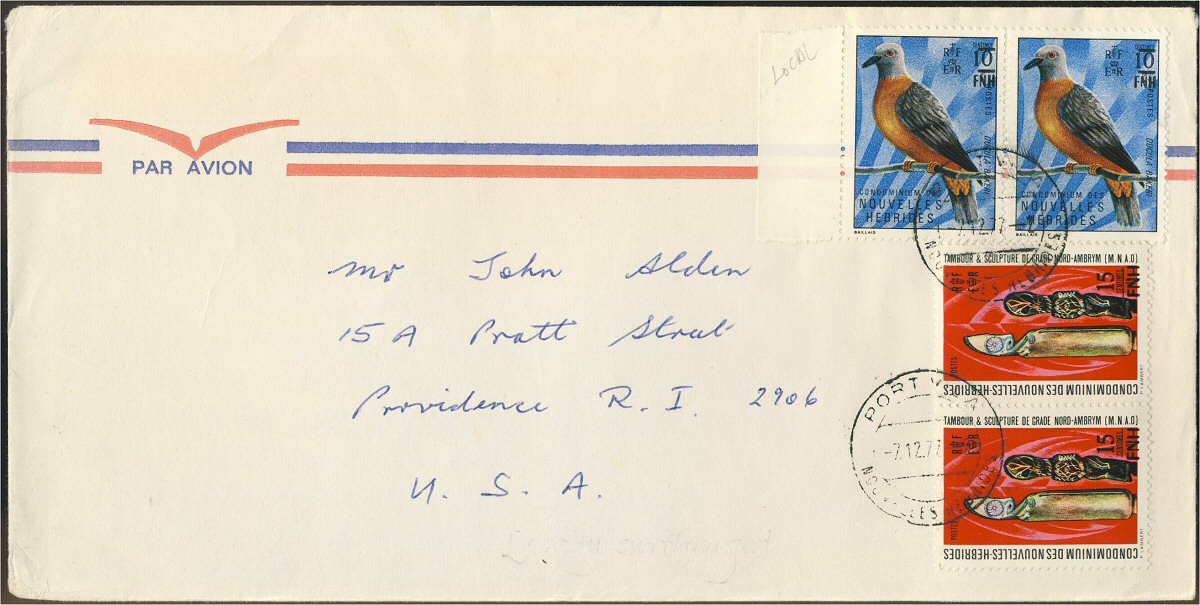 LOCAL
PAR AVION
RF
ER
10
FNH
POSTES
CONDOMINIUM DES
NOUVELLES
HEBRIDES
BAILLAIS
RF
ER
10
FNH
POSTES
CONDOMINIUM DES
NOUVELLES
HEBRIDES
BAILLAIS
Mr John Alden
15 A Pratt Street
Providence R. I. 2906
U. S. A.
TAMBOUR & SCULPTURE DE GRADE NORD-AMBRYM (M.N.A.O)
RF
ER
15
CENTIMES
FNH
POSTES
CONDOMINIUM DES NOUVELLES-HEBRIDES
P. LAMBERT
TAMBOUR & SCULPTURE DE GRADE NORD-AMBRYM (M.N.A.O)
RF
ER
15
CENTIMES
FNH
POSTES
CONDOMINIUM DES NOUVELLES-HEBRIDES
P. LAMBERT
PORT
-7.12.77